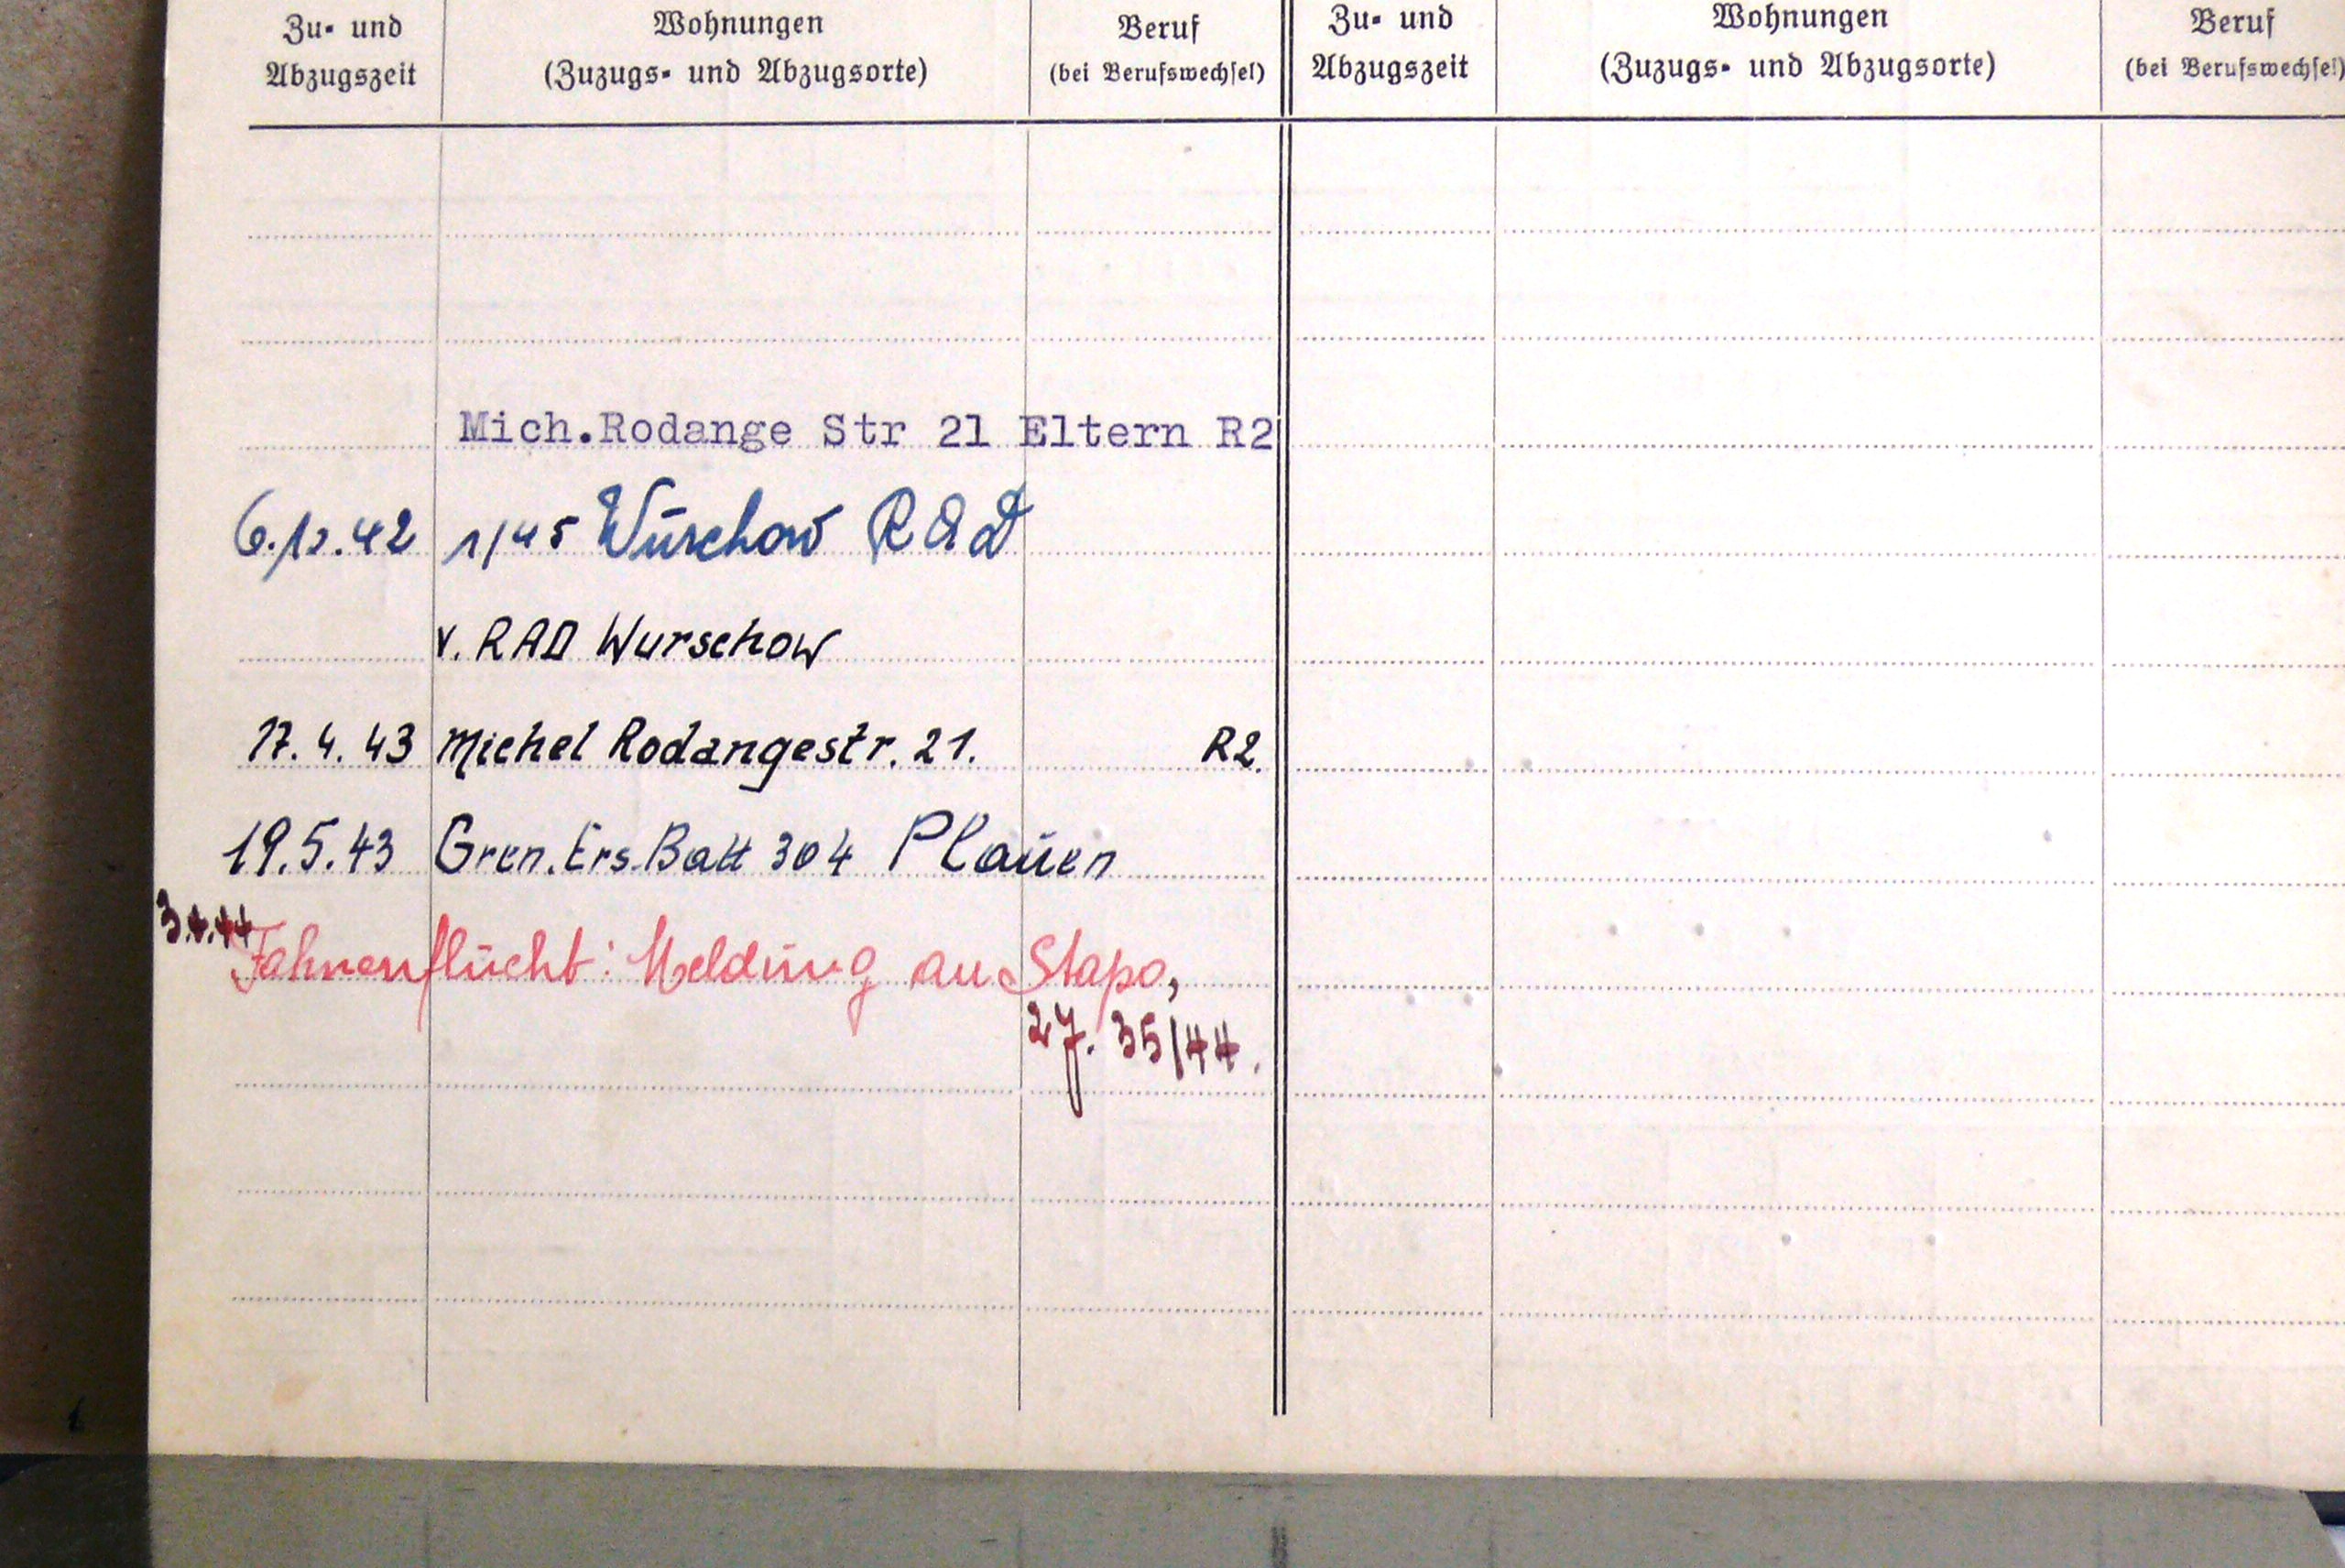 Zu- und Abzugszeit
Wohnungen
(Zuzugs- und Abzugsorte)
Beruf
(bei Berufswechsel)
Zu- und Abzugszeit
Wohnungen
(Zuzugs- und Abzugsorte)
Beruf
(bei Berufswechsel)
Mich.Rodange Str 21 Eltern R2
6.12.42 1/45 Wurschow RAD
v. RAD Wurschow
17.4.43 Michel Rodangestr. 21. R2.
19.5.43 Gren.Ers.Batt 304 Plauen
3.4.44
Fahnenflucht: Meldung an Stapo,
35/44.